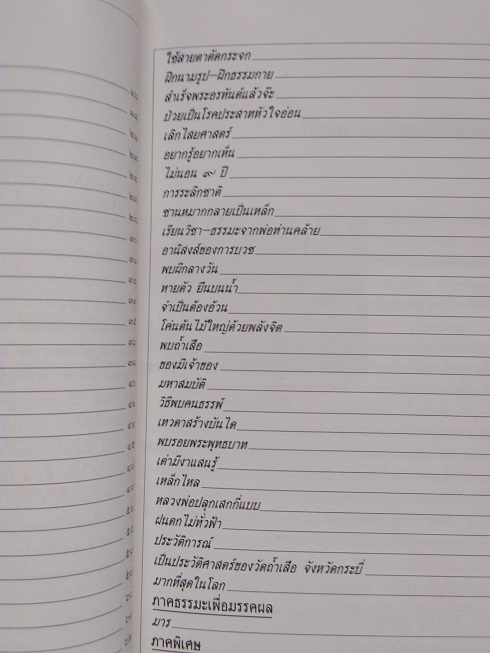 ใช้สายตาตัดกระจก
ฝึกนามรูป-ฝึกธรรมกาย
สำเร็จพระอรหันต์แล้วจ๊ะ
ป่วยเป็นโรคประสาทหัวใจอ่อน
เลิกไสยศาสตร์
อยากรู้อยากเห็น
ไม่นอน ๙ ปี
การระลึกชาติ
ชานหมากกลายเป็นเหล็ก
เรียนวิชา-ธรรมะจากพ่อท่านคล้าย
อานิสงส์ของการบวช
พบผีกลางวัน
หายตัว ยืนบนน้ำ
จำเป็นต้องอ้วน
โค่นต้นไม้ใหญ่ด้วยพลังจิต
พบถ้ำเสือ
ของมีเจ้าของ
มหาสมบัติ
วิธีพบคนธรรพ์
เทวดาสร้างบันได
พบรอยพระพุทธบาท
เต่ามีงาแสนรู้
เหล็กไหล
หลวงพ่อปลุกเสกกี่แบบ
ฝนตกไม่ทั่วฟ้า
ประวัติการณ์
เป็นประวัติศาสตร์ของวัดถ้ำเสือ จังหวัดกระบี่
มากที่สุดในโลก
ภาคธรรมะเพื่อมรรคผล
มาร
ภาคพิเศษ